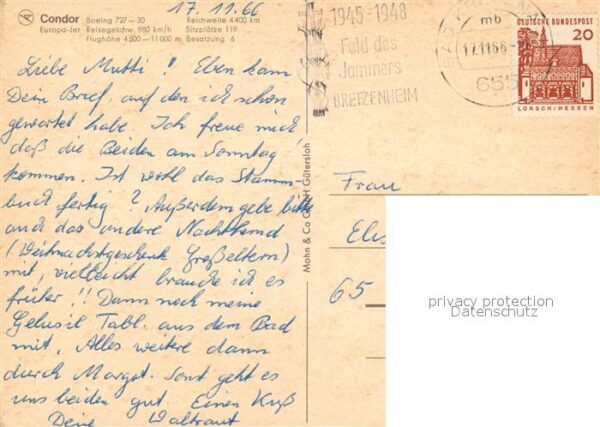 17.11.66
Condor Boeing 727–30 Reichweite 4400 km
Europa-Jet Reisegeschw. 980 km/h Sitzplätze 119
Flughöhe 4500–11000 m Besatzung 6
Liebe Mutti! Eben kam
Dein Brief, auf den ich schon
gewartet habe. Ich freue mich
daß die Beiden am Sonntag
kommen. Ist wohl das Stamm-
buch fertig? Außerdem gebe bitte
auch das andere Nachthemd
(Weihnachtsgeschenk Großeltern)
mit, vielleicht brauche ich es
früher!! Dann noch meine
Gelusil Tabl. aus dem Bad
mit, Alles weitere dann
durch Margot. Sonst geht es
uns beiden gut. Einen Kuß
Deine Waltraut
Mohn & Co GmbH Gütersloh
1945-1948
Feld des
Jammers
BRETZENHEIM
BAD
mb
17.11.66
655
DEUTSCHE BUNDESPOST
20
LORSCH/HESSEN
Frau
Elis
65
privacy protection
Datenschutz